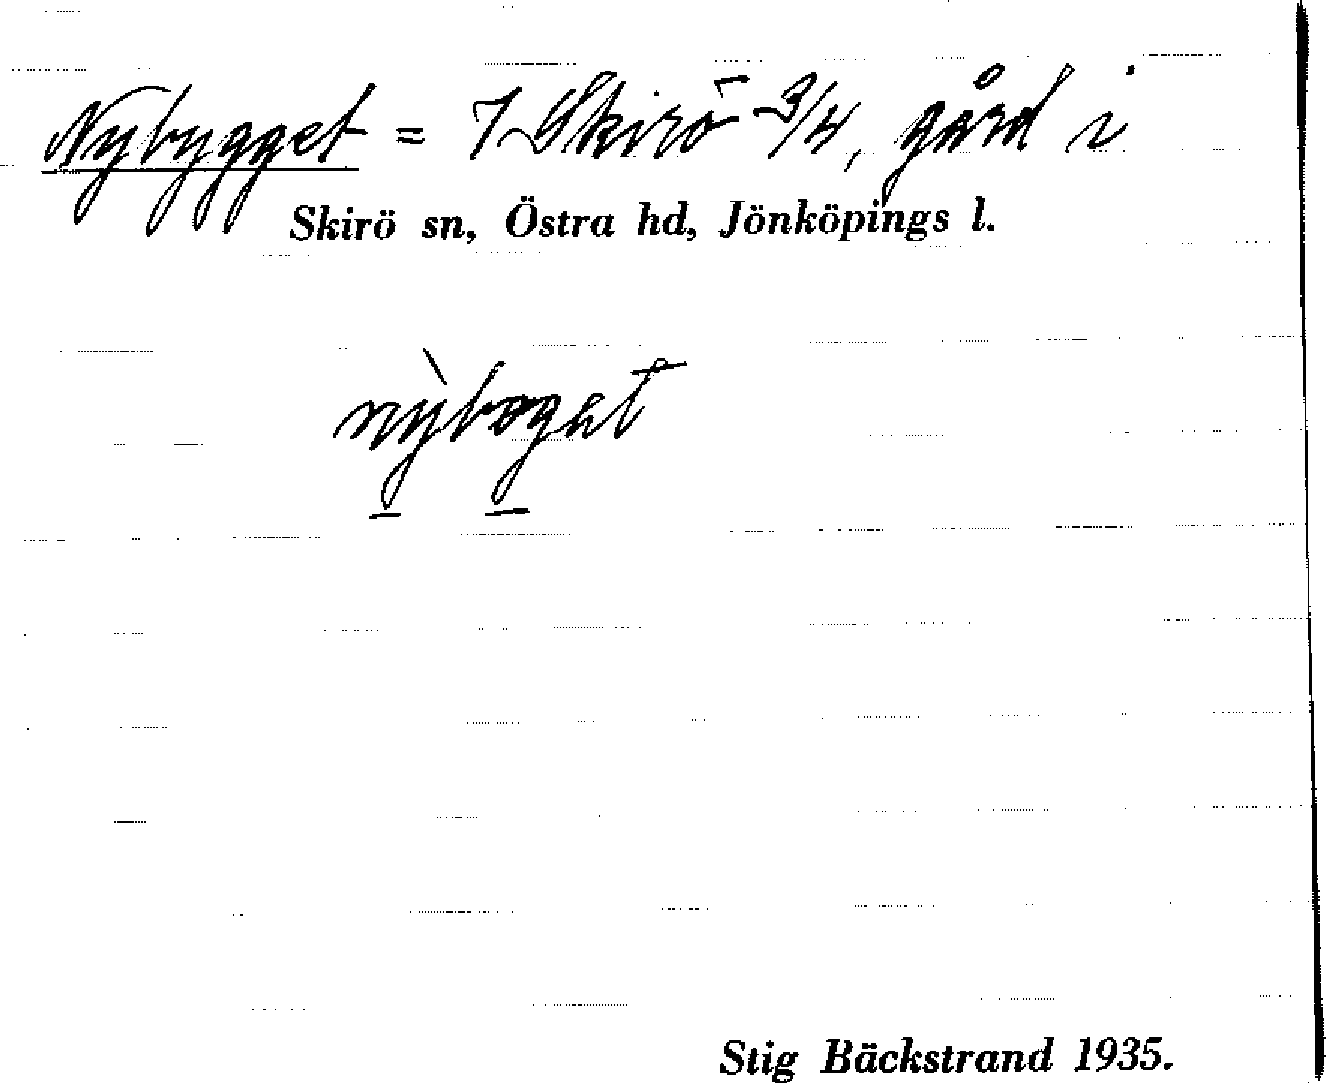 Nybygget = 7 Skirö 3/4, gård i
Skirö sn, Östra hd, Jönköpings l.
Stig Bäckstrand 1935.